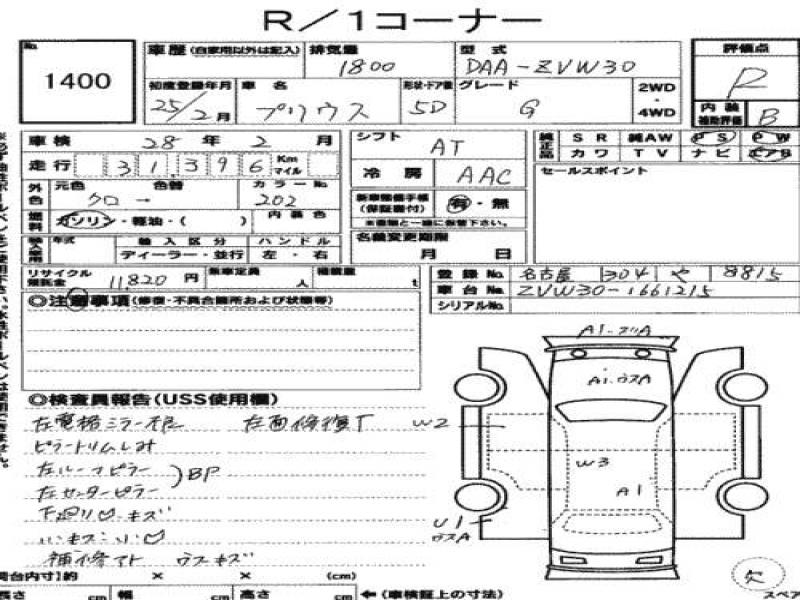 R／1コーナー
No. 1400
車歴 (自家用以外は記入) 排気量 1800 型式 DAA-ZVW30
初度登録年月 25/2月 車名 プリウス 形状・ドア数 5D グレード G 2WD・4WD
評価点 R
内装補助評価 B
車検 28年 2月 シフト AT
走行 31,396 Km マイル 冷房 AAC
純正品 SR 純AW PS PW
カワ TV ナビ エアB
セールスポイント
外色 元色 クロ 色替 → カラーNo. 202
新車整備手帳(保証書付) 有・無
※書類と一緒に保管下さい。
燃料 ガソリン・軽油・( ) 内装色
名義変更期限 月 日
輸入車用 年式 輸入区分 ハンドル
ディーラー・並行 左・右
リサイクル預託金 11,820円 乗車定員 人 積載量 t
登録No. 名古屋 304 や 8815
車台No. ZVW30-1661215
シリアルNo.
◎注意事項(修復・不具合箇所および状態等)
◎検査員報告(USS使用欄)
左電格ミラー不良 左面修復了
ピラートリムしみ
左ルーフピラー
左センターピラー )BP
下廻り キズ
補修アト ウスキズ
A1
A1.ウスA
W2
W3
A1
U1
ウスA
欠
スペア
車台内寸】約 × × (cm)
長さ cm 幅 cm 高さ cm ←(車検証上の寸法)